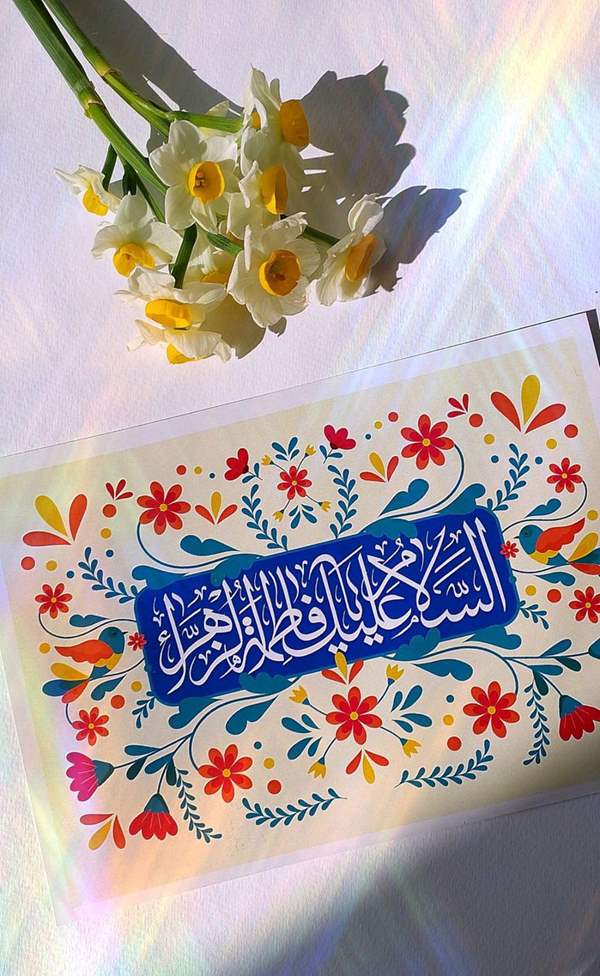 السَّلامُ عَلَیكِ یا فاطِمَةَ الزَّهْراءُ